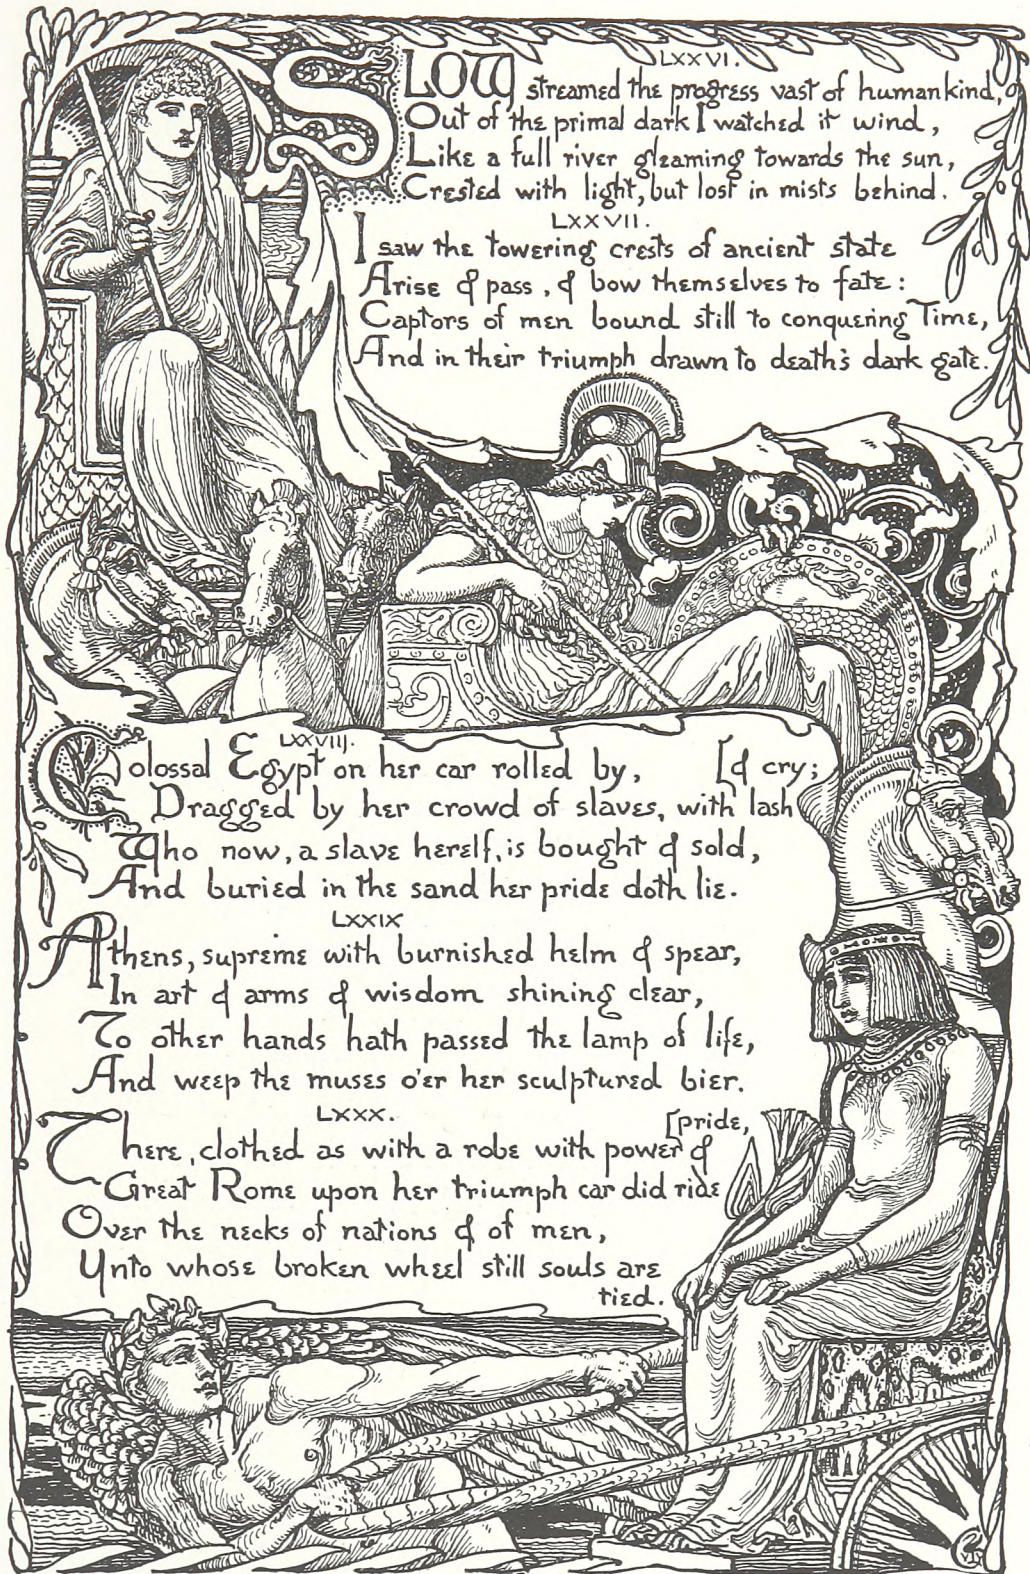 LXXVI.
SLOW streamed the progress vast of humankind,
Out of the primal dark I watched it wind,
Like a full river gleaming towards the sun,
Crested with light, but lost in mists behind.
LXXVII.
I saw the towering crests of ancient state
Arise & pass, & bow themselves to fate:
Captors of men bound still to conquering Time,
And in their triumph drawn to death's dark gate.
LXXVIIJ.
Colossal Egypt on her car rolled by, [& cry;
Dragged by her crowd of slaves, with lash
Who now, a slave herelf, is bought & sold,
And buried in the sand her pride doth lie.
LXXIX
Athens, supreme with burnished helm & spear,
In art & arms & wisdom shining clear,
To other hands hath passed the lamp of life,
And weep the muses o'er her sculptured bier.
LXXX. [pride,
There, clothed as with a robe with power &
Great Rome upon her triumph car did ride
Over the necks of nations & of men,
Unto whose broken wheel still souls are
tied.